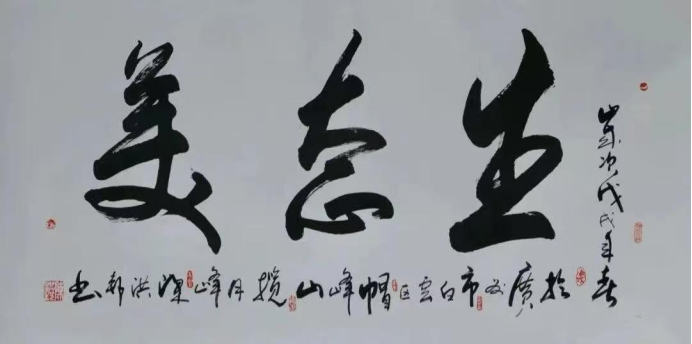 生态美
歲次戊戌年春
於廣州市白云区帽峰山揽月峰洪书